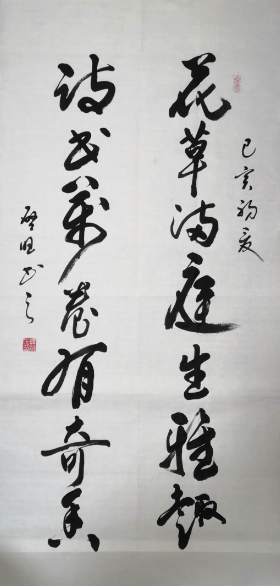 己亥初夏
花草满庭生雅趣
诗书萬卷有奇香
书之